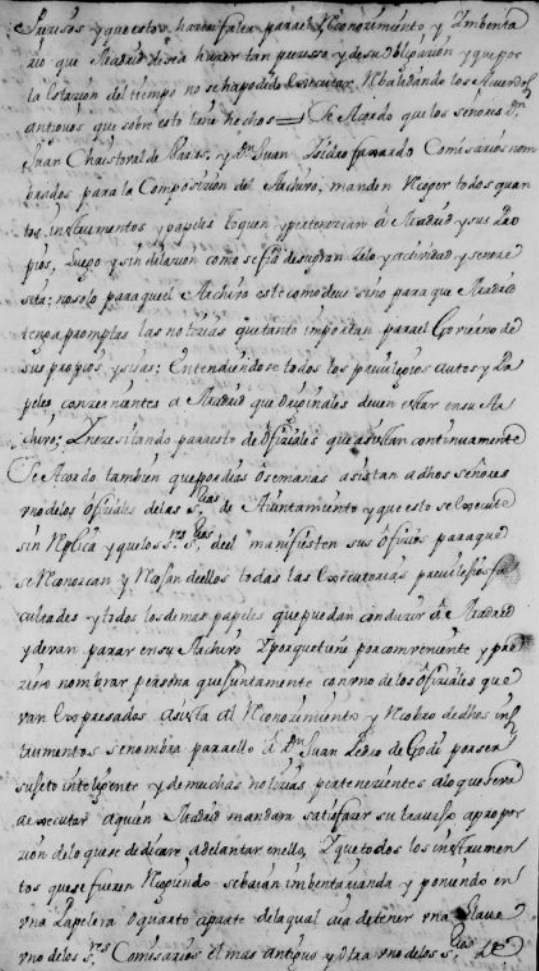 precisos y que estos haran falta para el Reconozimiento y Imbenta
rio que Madrid desea hazer tan preciso y de su obligazion y que por
la estazion del tiempo no se ha podido executar Rebalidando los Acuerdos
antiguos que sobre esto tiene hechos = Se Acordo que los señores Dn
Juan Christoval de Barcos, y Dn Juan Isidro faxardo Comisarios nom
brados para la Composizion del Archivo, manden Recoger todos quan
tos instrumentos y papeles toquen y pertenezcan â Madrid y sus Pro
pios, luego y sin dilazion como se fia de su gran zelo y actividad y se nece
sita: no solo para que el Archivo este como deve sino para que Madrid
tenga promptas las notizias que tanto importan para el Govierno de
sus propios y sisas: Entendiendose todos los previlegios autos y Pa
peles conzernientes a Madrid que originales deven estar en su Ar
chivo; I nezesitando para esto de ôfiziales que asistan continuamente
Se Acordo tambien que por dias ô semanas asistan a dhos señores
vno delos ôfiziales de las s.rias de Aiuntamiento y que esto se execute
sin Replica y que los s.res s.rios deel manifiesten sus ôfizios para que
se Reconozcan y Recojan de ellos todas las executorias previlegios fa
cultades y todos los demas papeles que puedan conduzir â Madrid
y devan parar en su Archivo I porque tiene por comveniente y pre
ziso nombrar persona que juntamente con vno de los ôfiziales que
van expresados asista al Reconozimiento y Recobro de dhos ins
trumentos se nombra para ello â Dn Juan Pedro de Godi por ser
sujeto inteligente y de muchas notizias pertenezientes alo que sera
de executar a quien Madrid mandara satisfazer su travajo a propor
zion de lo que se dedicare adelantar en ello, I que todos los instrumen
tos que se fueren Recogiendo se baian imbentarianda y poniendo en
vna Papelera ô quarto aparte de la qual aia de tener vna llave
vno de los s.res Comisarios el mas antiguo y otra vno de los s.rios